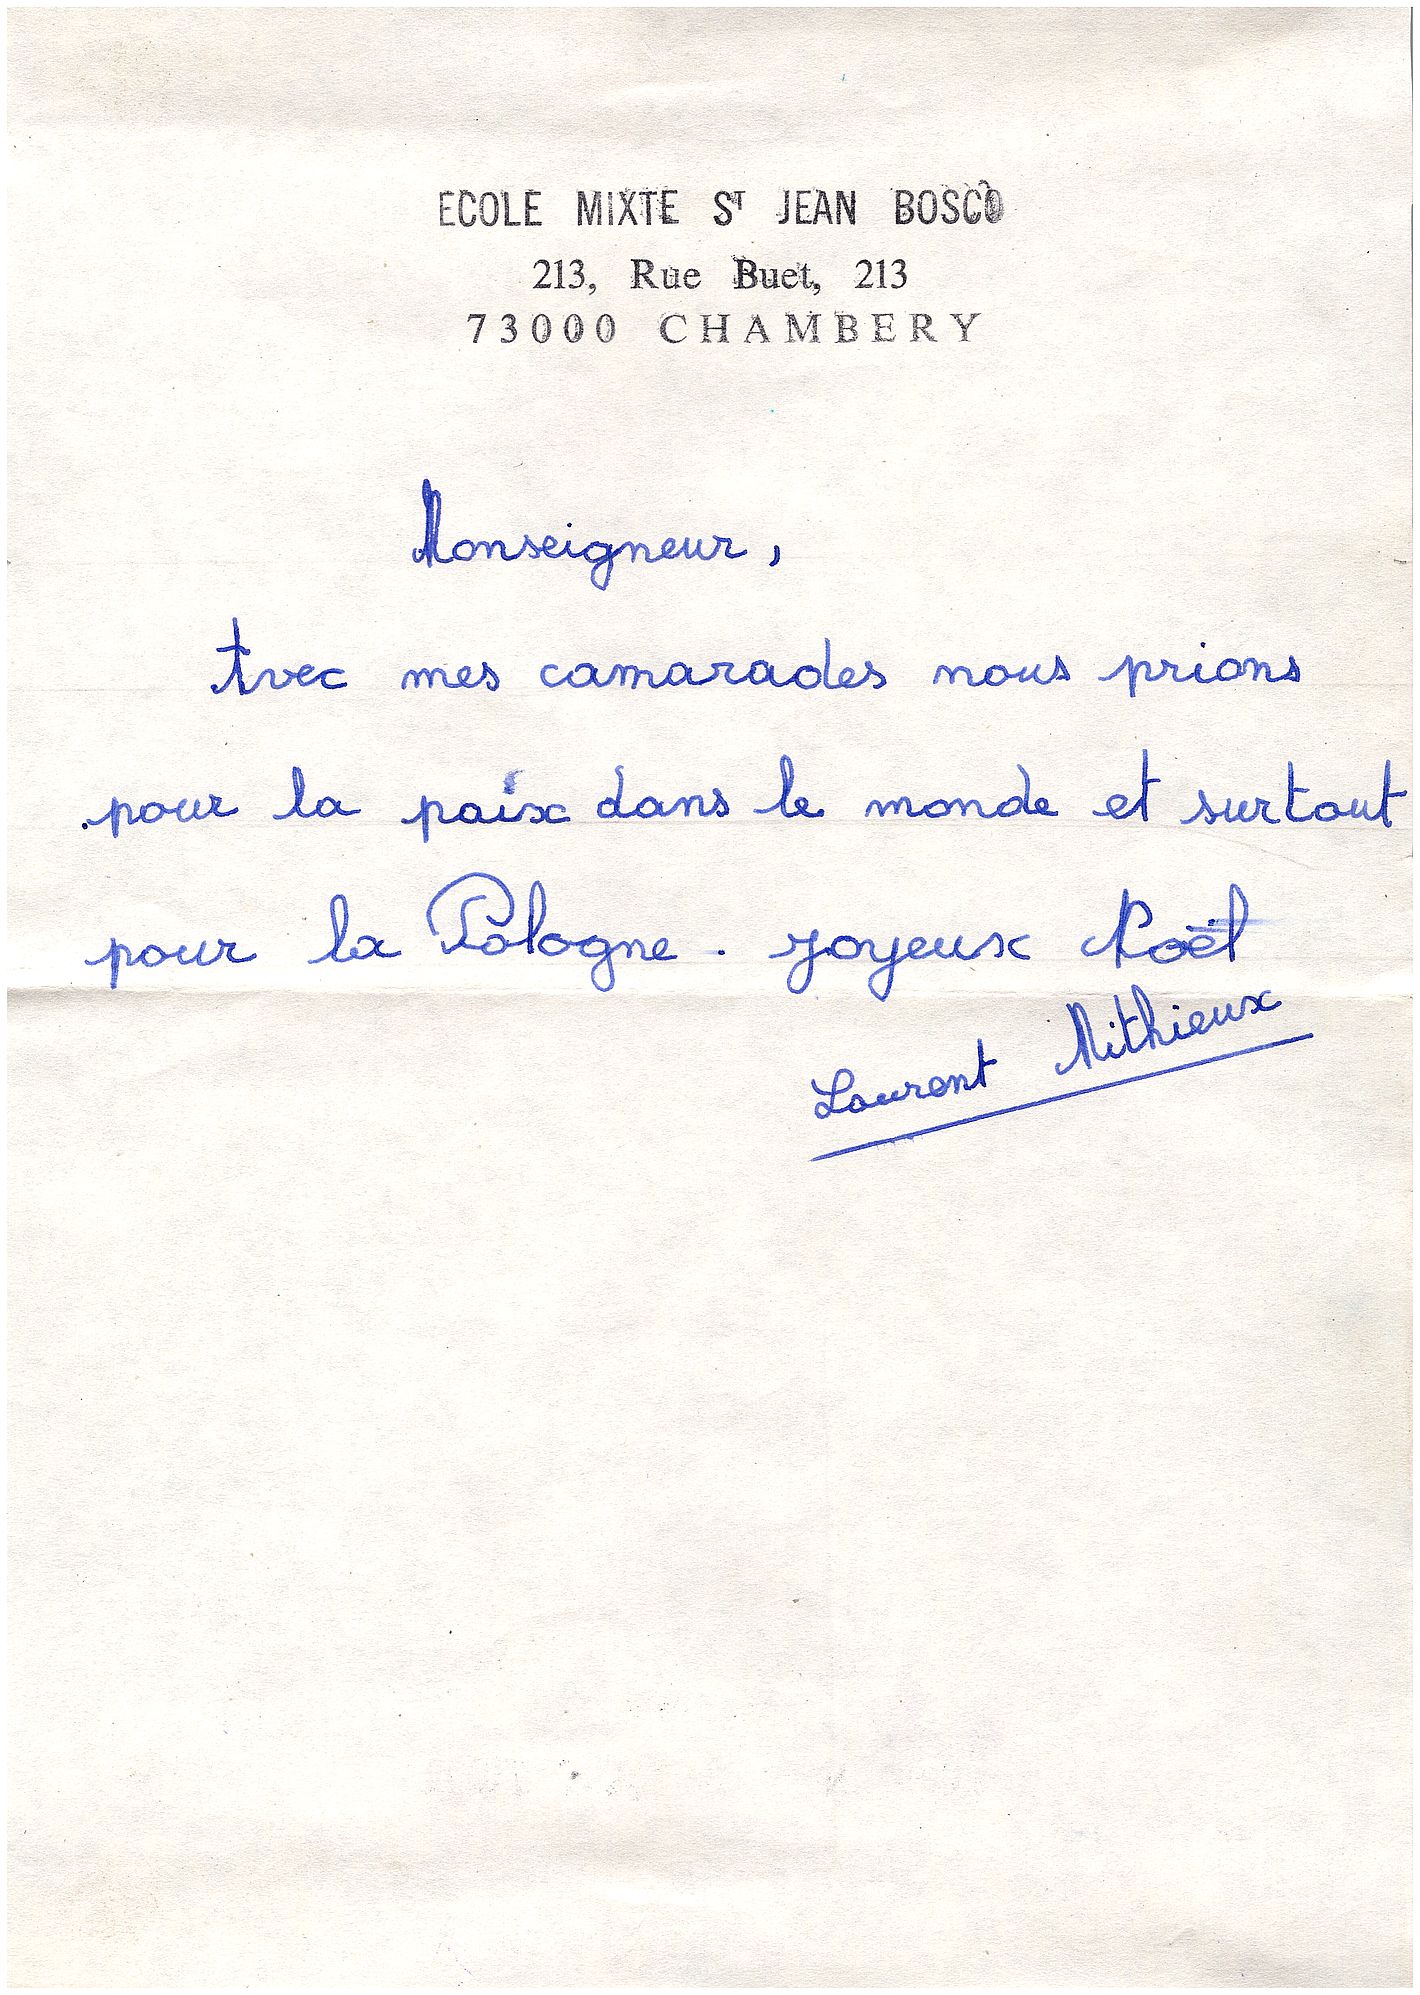 ECOLE MIXTE ST JEAN BOSCO
213, Rue Buet, 213
73000 CHAMBERY
Monseigneur,
Avec mes camarades nous prions
pour la paix dans le monde et surtout
pour la Pologne. Joyeux Noël
Laurent Mithieux